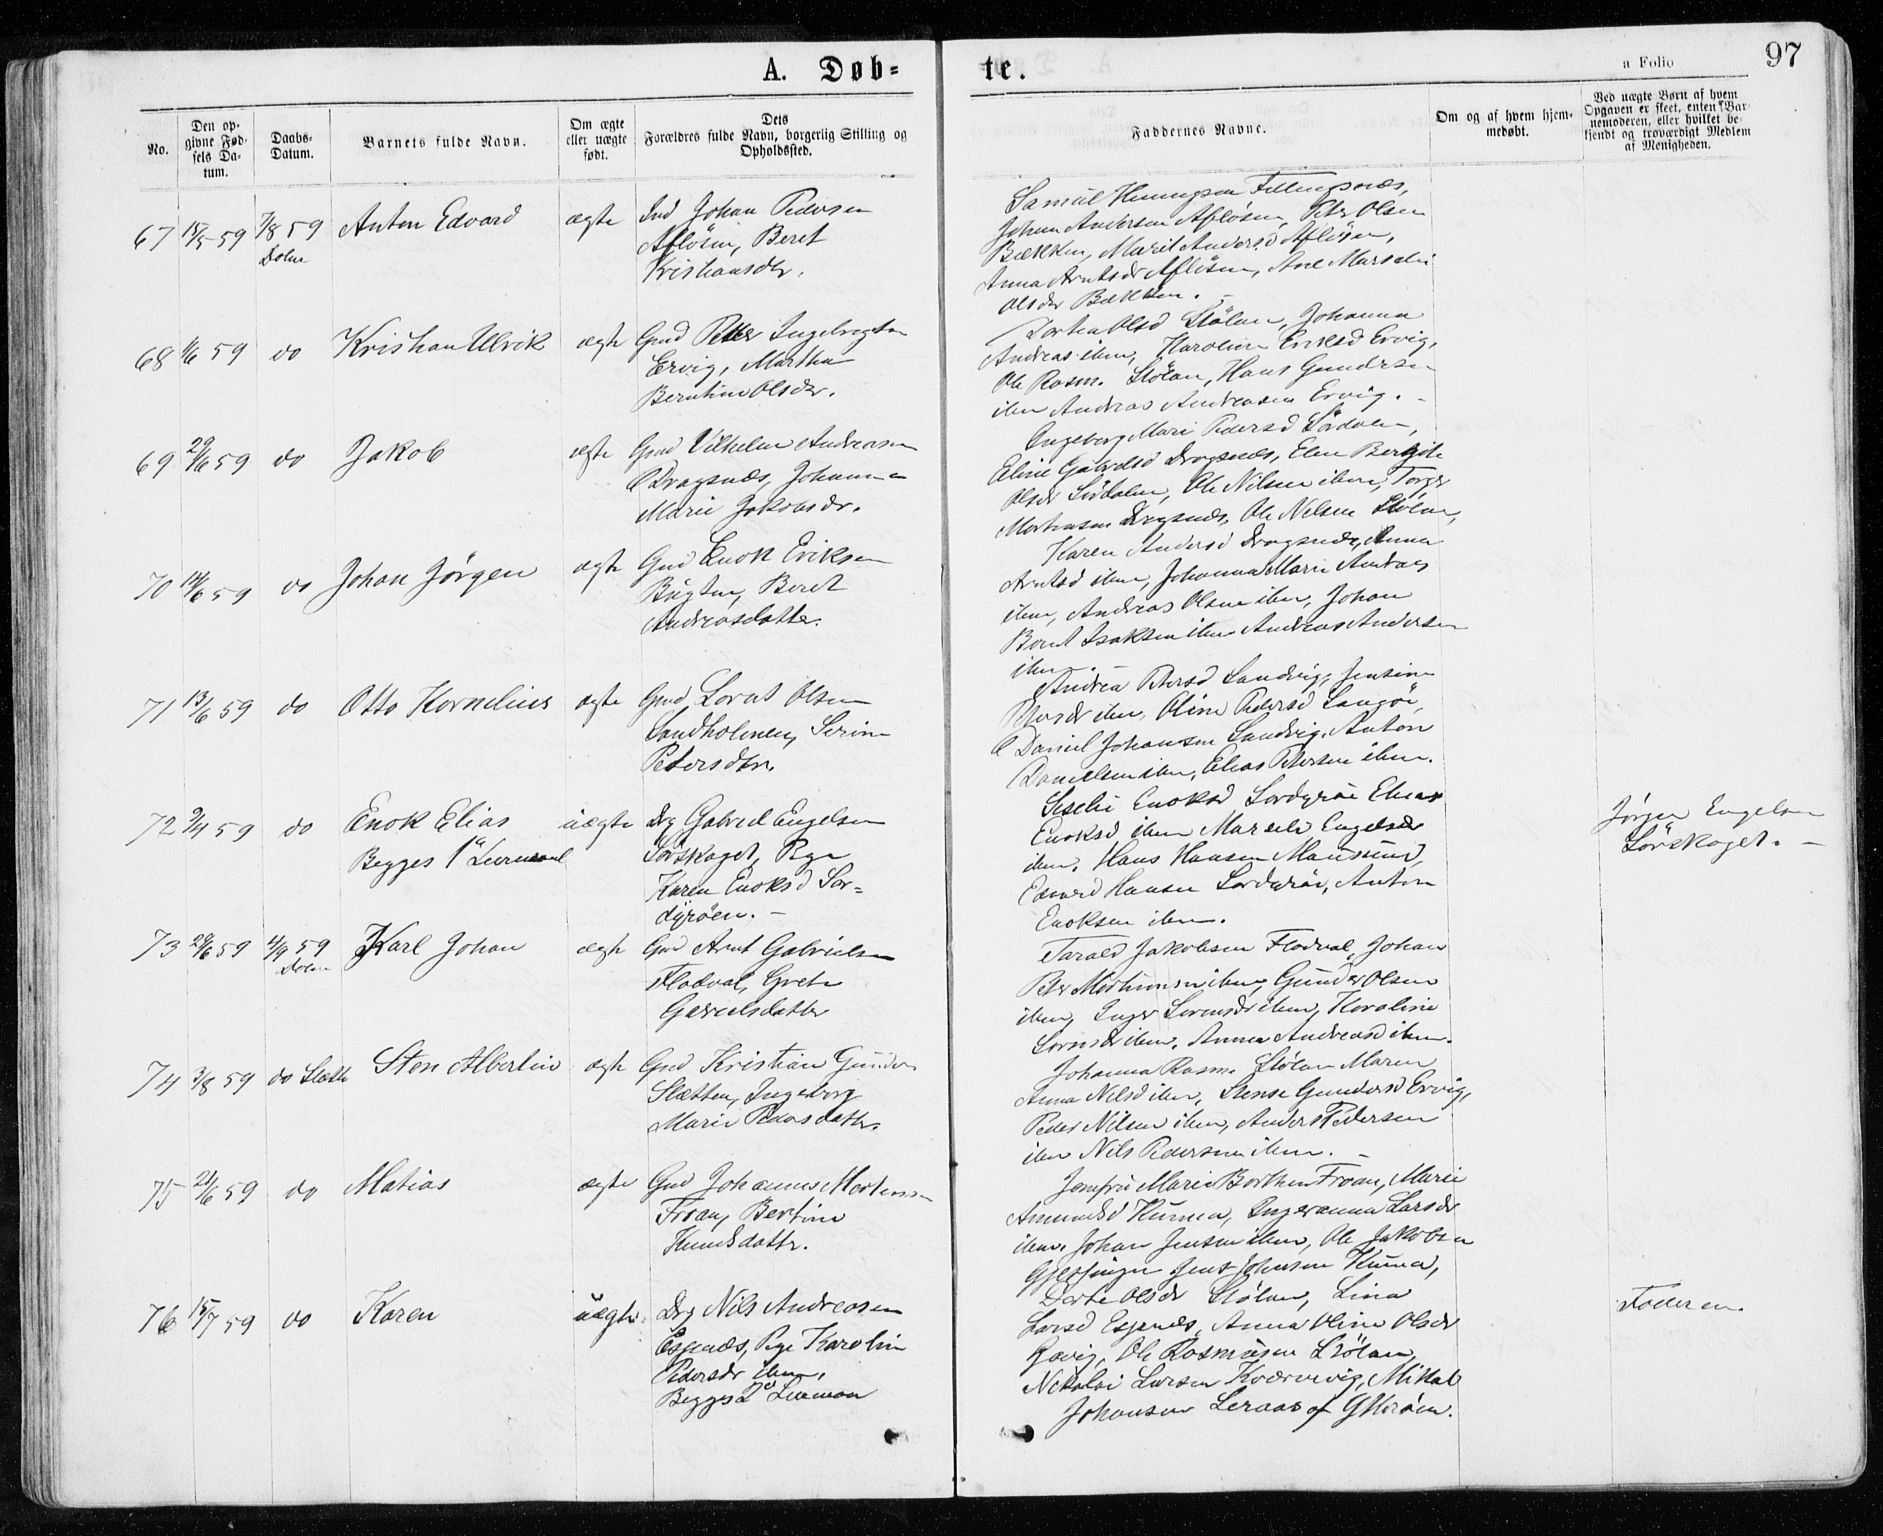 A. Døb-
te.
a Folio
97
No.
Den op-
givne Fød-
sels Da-
tum.
Daabs-
Datum.
Barnets fulde Navn.
Om ægte
eller uægte
født.
Dets
Forældres fulde Navn, borgerlig Stilling og
Opholdssted.
Faddernes Navne.
Om og af hvem hjem-
medøbt.
Ved uægte Børn af hvem
Opgaven er skeet, enten Bar-
nemoderen, eller hvilket be-
kjendt og troværdigt Medlem
af Menigheden.
67 15/5 59 7/8 59 Anton Edvard ægte Ind Johan Pedersen
Dolm
Afløsen, Beret
Kristiansdtr.
Samuel Henningsen Fillingsnæs,
Johan Andersen Afløsen, Peter Olsen
Bækken, Marit Andersd Afløsen,
Anna Arntsdr Afløsen, Ane Marselie
Olsdr Bækken. -
68 1/6 59 do Kristian Ulrik ægte Gmd Petter Ingebrigtsen
Ervig, Martha
Berntine Olsdtr.
Dorthea Olsd Stølan, Johanna
Andreas. ibm, Karoline Eriksd Ervig,
Ole Rasm. Stølan, Hans Gundersen
ibm Andreas Andreasen Ervig. -
69 29/6 59 do Jakob ægte Gmd Vilhelm Andreasen
Dragsnæs, Johanna
Marie Jakobsdr.
Ingeborg Mari Pedersd Sørdalen,
Eline Gabrielsd Dragsnæs, Elen Bergite
Olsdr Sørdalen, Ole Nilsen ibm, Torger
Mortensen Dragsnæs, Ole Nilsen Stølan,
70 14/6 59 do Johan Jørgen ægte Gmd Enok Eriksen
Bugten, Beret
Andreasdatter.
Karen Andersd Dragsnæs, Anna
Arntsd ibm, Johanna Marie Andreas
ibm, Andreas Olsen ibm, Johan
Bernt Isaksen ibm Andreas Andersen
ibm. -
71 13/6 59 do Otto Kornelius ægte Gmd Lorents Olsen
Sandholmen, Serine
Petersdtr.
Andrea Petersd Sandvig, Jensine
Petersdr ibm, Oline Pedersd Langøi,
Daniel Johansen Sandvig, Anton
Danielsen ibm, Elias Petersen ibm.
72 9/4 59 do Enok Elias uægte Drg Gabriel Engelsen
Begges 1ste Leiermaal
Sørskaget, Pige
Karen Enoksd Sor-
dyrøen. -
Sisilie Enoksd Sordyrøe Elias
Enoksd ibm Marselie Engelsdr
ibm, Hans Hansen Mausund,
Edvard Hansen Sordyrøe, Anton
Enoksen ibm.
Jørgen Engelsen
Sørskaget. -
73 29/6 59 4/9 59 Karl Johan ægte Gmd Arnt Gabrielsen
Dolm
Fladval, Grete
Gabrielsdatter
Tarald Jakobsen Fladval, Johan
Peter Mortensen ibm, Gunder Olsen
ibm, Inger Sørensdr ibm, Karoline
Sørensdr ibm, Anna Andreasd ibm.
74 3/8 59 do Slætte Sten Albertin ægte Gmd Kristian Gunders
Slætten, Ingeborg
Marie Pedersdatter.
Johanna Rasm. Stølan Maren
Anna Nilsd ibm, Stense Gundersd Ervig,
Peder Nilsen ibm, Anders Pedersen
ibm Nils Pedersen ibm. -
75 21/6 59 do Matias ægte Gmd Johannes Mortensen
Froan, Bertine
Knudsdatter.
Jomfru Marie Borthen Froan, Marie
Amundsd Kunna, Ingeranna Larsdr
ibm, Johan Jensen ibm, Ole Jakobsen
Gjessingen Jens Johnsen Kunna,
76 15/7 59 do Karen uægte Drg Nils Andreasen
Espnæs, Pige Karolin
Pedersdr ibm,
Begges 2det Leiermaal
Dorte Olsdr Stølan, Lina
Larsd Espnæs, Anna Oline Olsdr
Gjøvig, Ole Rasmusen Stølan
Nikolai Larsen Kværnvig, Mikal
Johansen Leraas af Hitterøen.
Faderen.